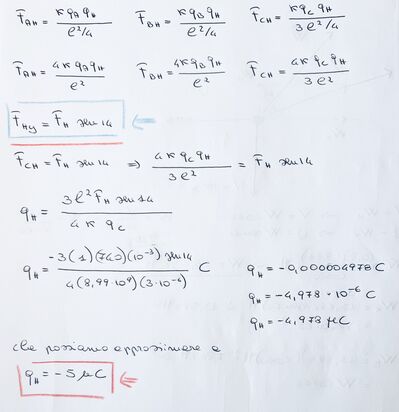 F̄_AH = K q_A q_H / (ℓ²/4)   F̄_BH = K q_B q_H / (ℓ²/4)   F̄_CH = K q_C q_H / (3ℓ²/4)
F̄_AH = 4K q_A q_H / ℓ²   F̄_BH = 4K q_B q_H / ℓ²   F̄_CH = 4K q_C q_H / 3ℓ²
F̄_Hy = F̄_H sen 14 ⇐
F̄_CH = F̄_H sen 14 ⇒ 4K q_C q_H / 3ℓ² = F̄_H sen 14
q_H = 3ℓ² F̄_H sen 14 / 4K q_C
q_H = -3(1)(740)(10⁻³) sen 14 / 4(8,99·10⁹)(3·10⁻⁶) C   q_H = -0,000004978 C
q_H = -4,978 · 10⁻⁶ C
q_H = -4,978 μC
che possiamo approssimare a
q_H = -5 μC ⇐